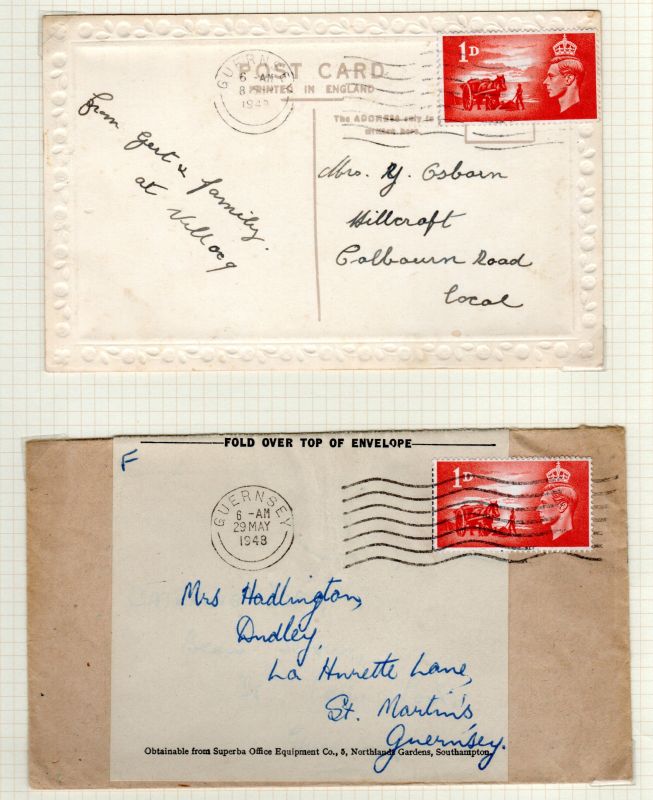 GUERNSEY
6 - AM
1948
POST CARD
PRINTED IN ENGLAND
The ADDRESS only to
written here.
1D
from Gert & family.
at
Mrs. Y. Osborn
Hillcroft
Colbourn Road
Local
FOLD OVER TOP OF ENVELOPE
F
GUERNSEY
6 - AM
29 MAY
1948
1D
Mrs Hadlington,
Dudley,
La Hurette Lane,
St. Martin's,
Guernsey.
Obtainable from Superba Office Equipment Co., 5, Northlands Gardens, Southampton